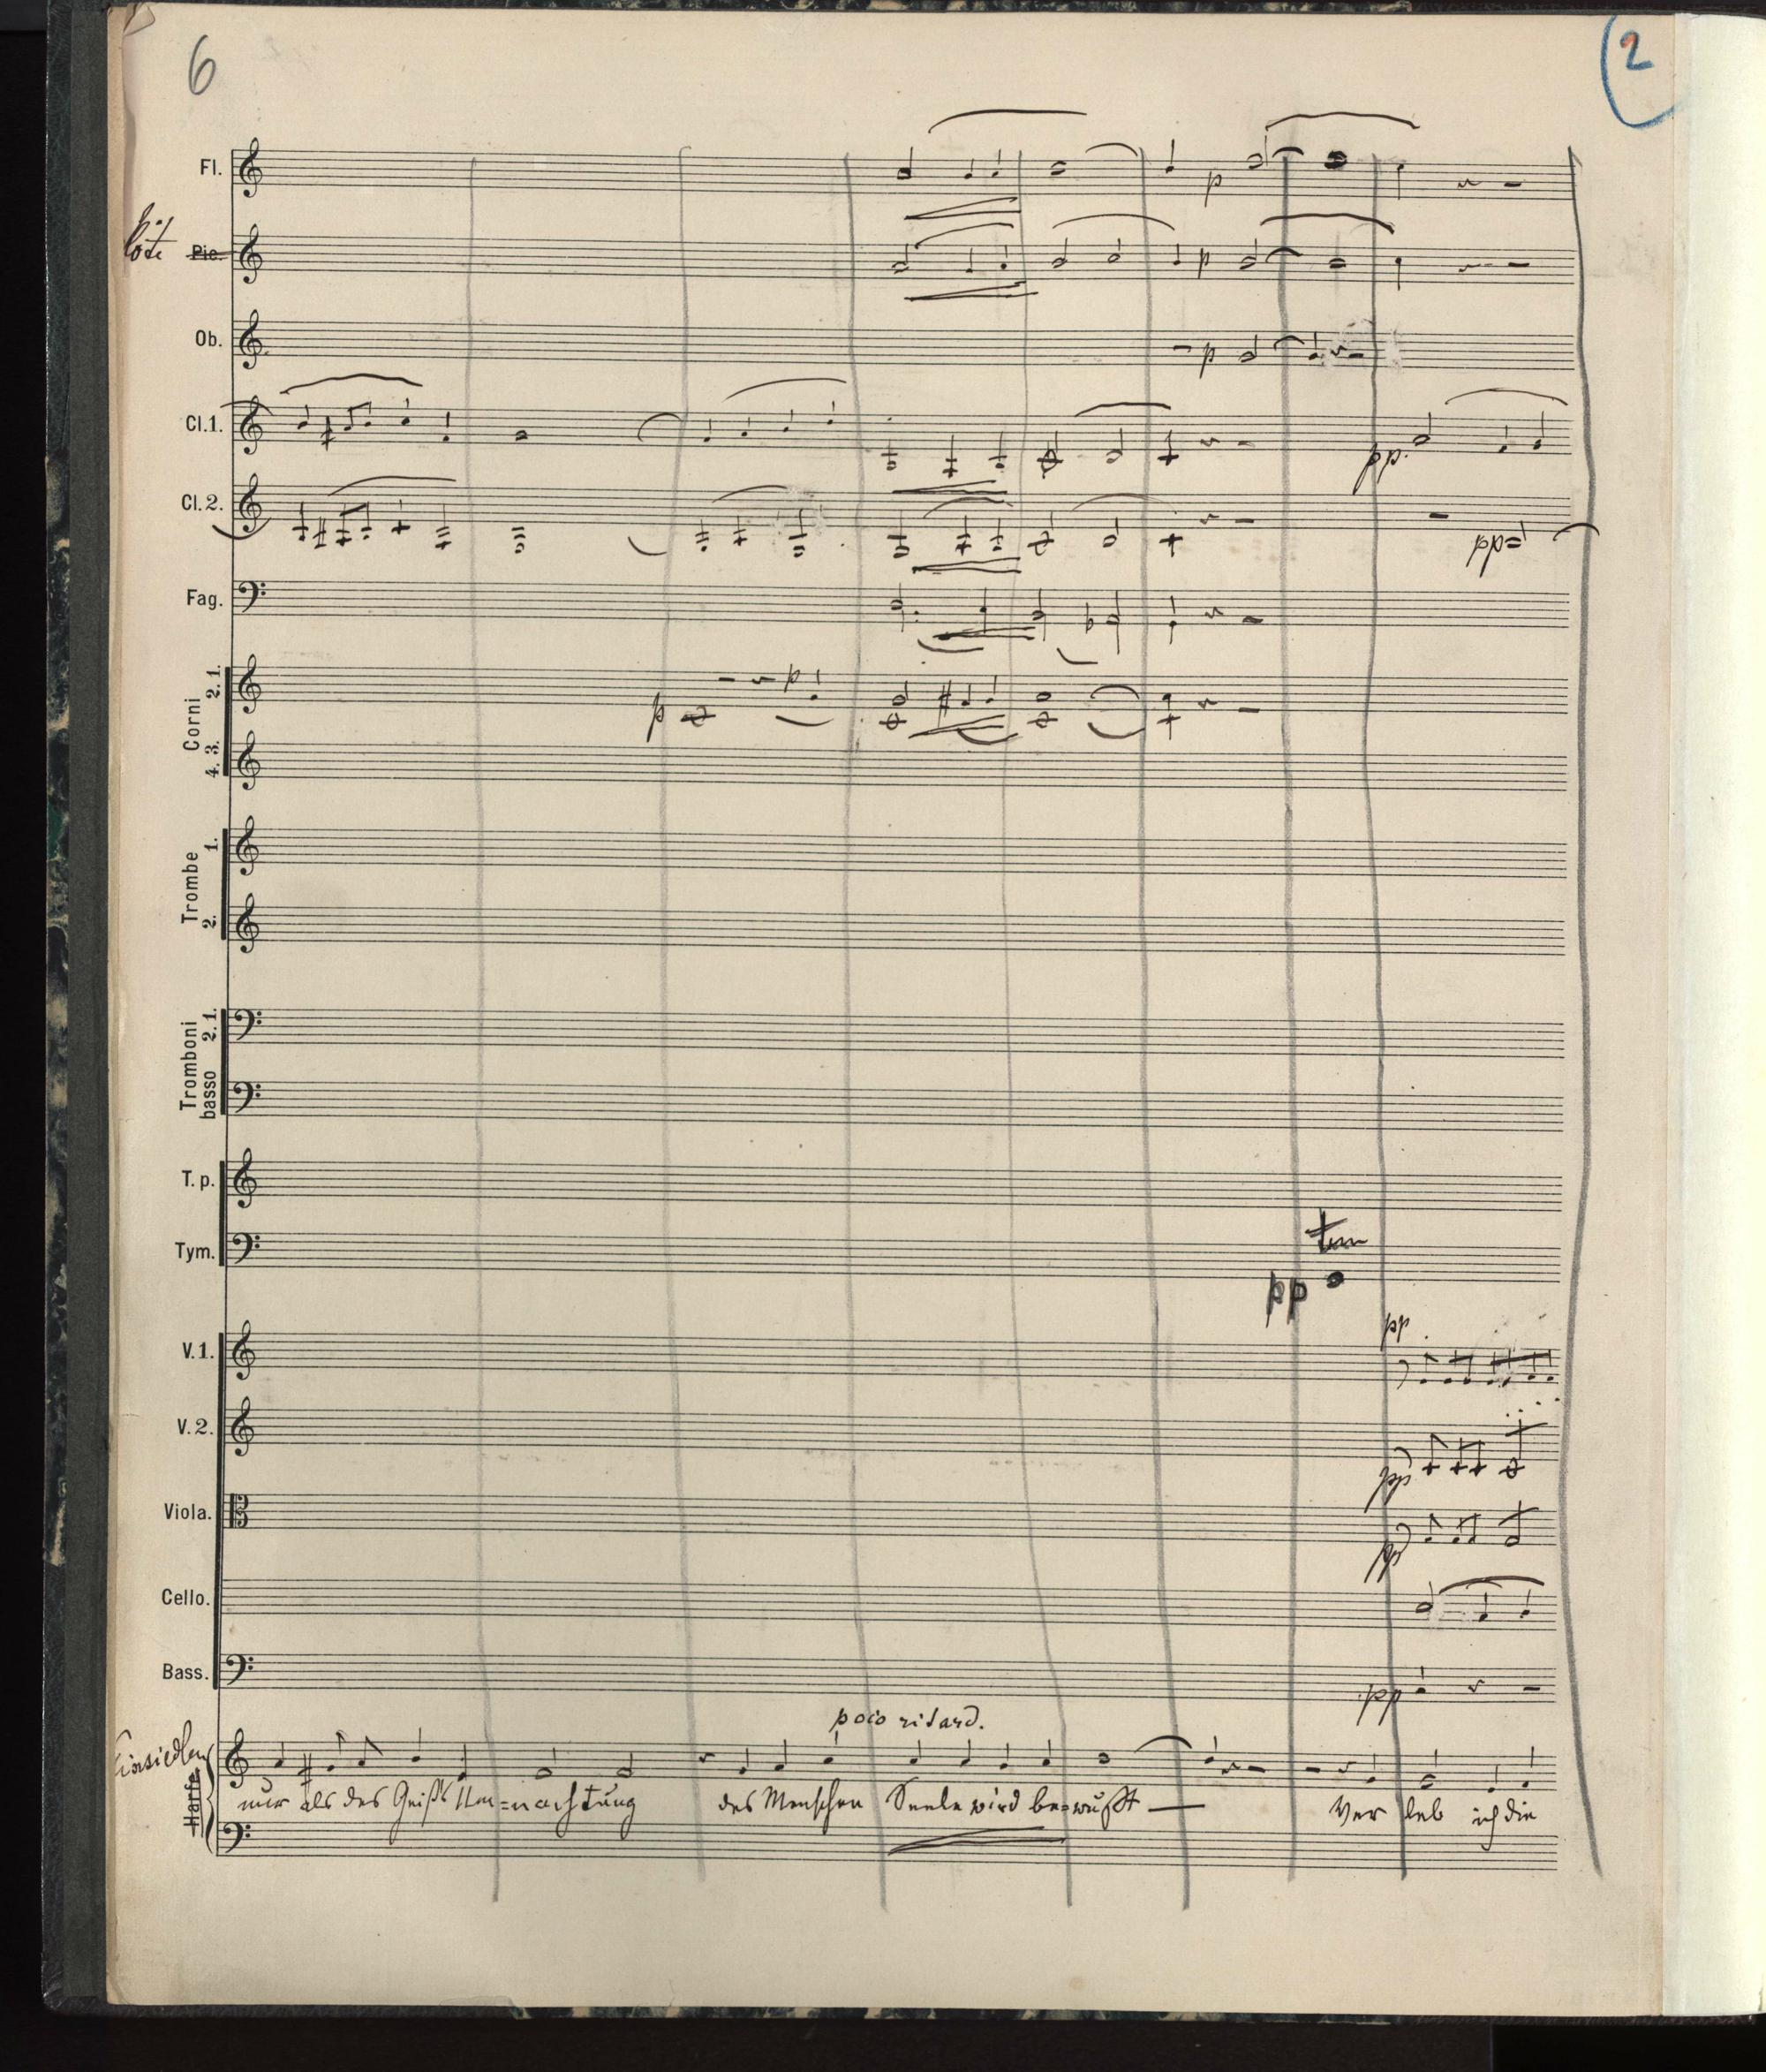 6
2
Fl.
Pic.
Ob.
Cl.1.
Cl.2.
Fag.
Corni
2.1.
4.3.
Trombe
1.
2.
Tromboni
2.1.
basso
T.p.
Tym.
V.1.
V.2.
Viola.
Cello.
Bass.
Harfe.
p
p
p
pp.
pp
p
p
pp
pp
pp
pp
pp
poco ritard.
Einsiedler
nur als des Geist's =nachtung des Menschen Seele wird be=wußt — Ver leb ich die